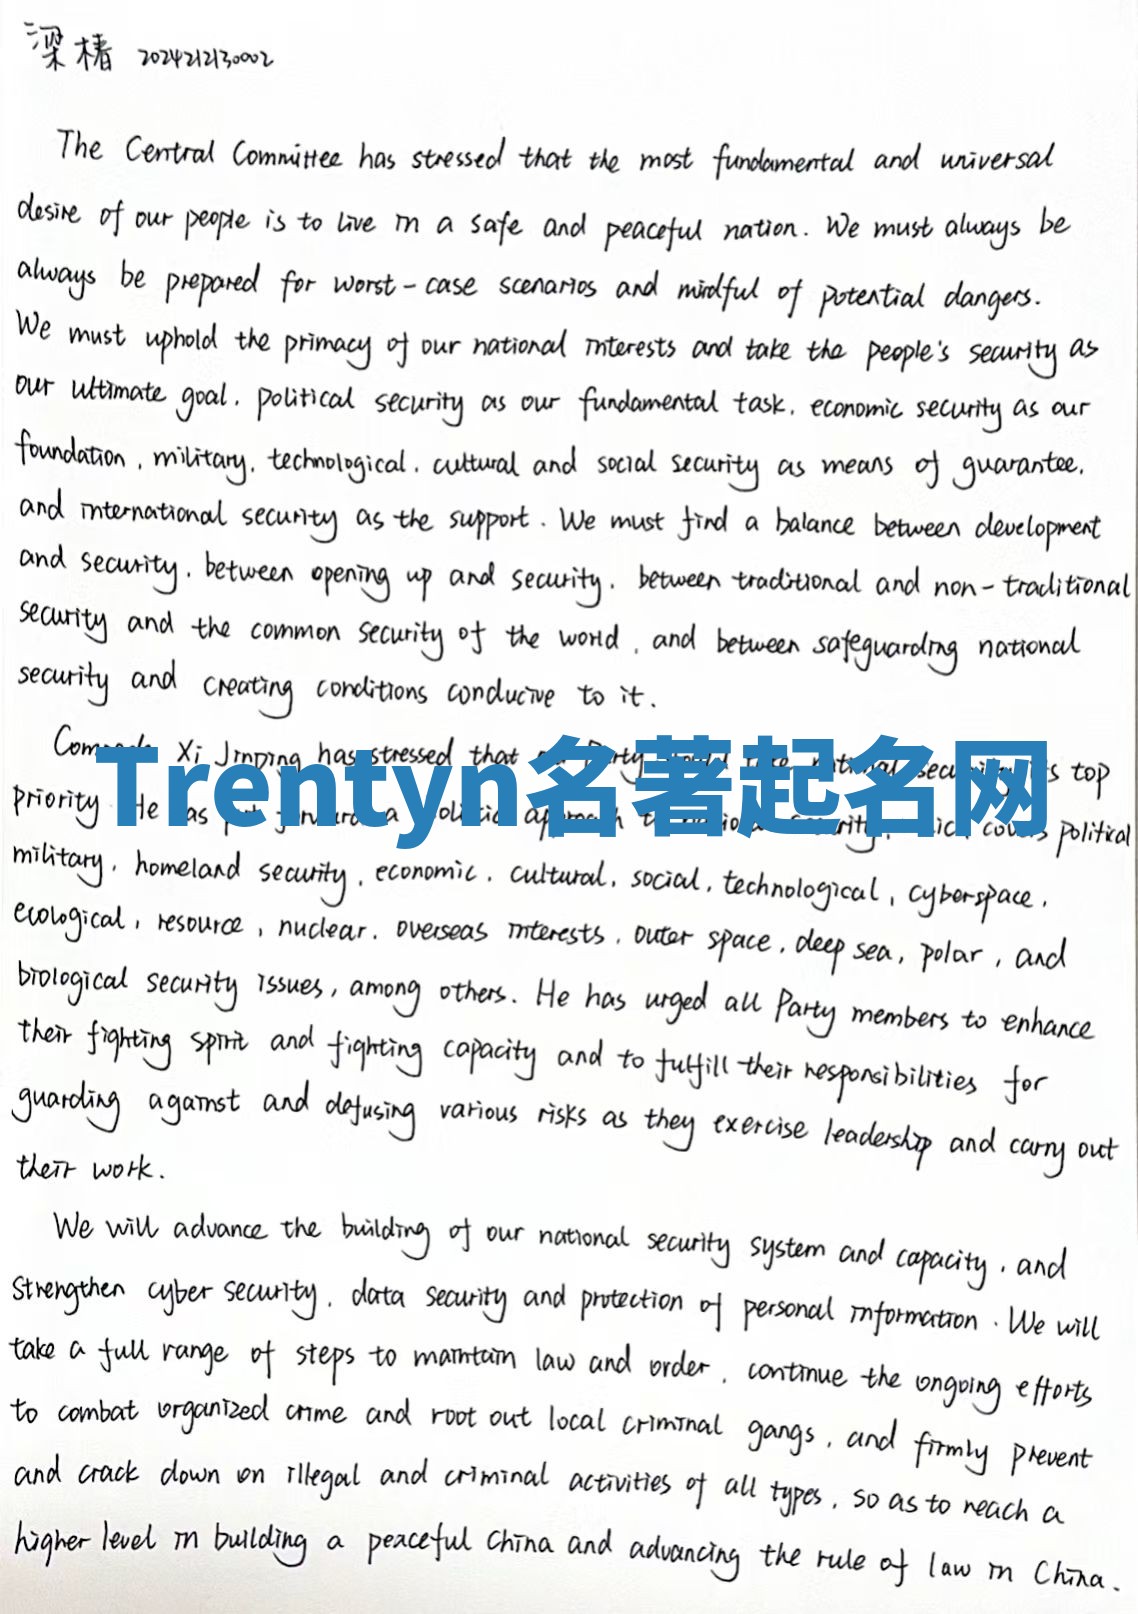 梁椿 2024212130002
The Central Committee has stressed that the most fundamental and universal
desire of our people is to live in a safe and peaceful nation. We must always be
always be prepared for worst-case scenarios and mindful of potential dangers.
We must uphold the primacy of our national interests and take the people's security as
our ultimate goal, political security as our fundamental task, economic security as our
foundation, military, technological, cultural and social security as means of guarantee,
and international security as the support. We must find a balance between development
and security, between opening up and security, between traditional and non-traditional
security and the common security of the world, and between safeguarding national
security and creating conditions conducive to it.
Xi Jinping has stressed that Party national security top
priority He has a to national security, covers political
Trentyn名著起名网
military, homeland security, economic, cultural, social, technological, cyberspace,
ecological, resource, nuclear, overseas interests, outer space, deep sea, polar, and
biological security issues, among others. He has urged all Party members to enhance
their fighting spirit and fighting capacity and to fulfill their responsibilities for
guarding against and defusing various risks as they exercise leadership and carry out
their work.
We will advance the building of our national security system and capacity, and
strengthen cyber security, data security and protection of personal information. We will
take a full range of steps to maintain law and order, continue the ongoing efforts
to combat organized crime and root out local criminal gangs, and firmly prevent
and crack down on illegal and criminal activities of all types, so as to reach a
higher level in building a peaceful China and advancing the rule of law in China.